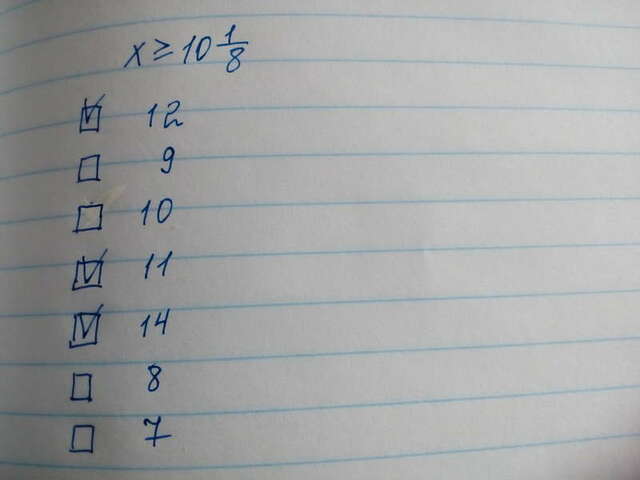 x ≥ 10 1/8
☑ 12
☐ 9
☐ 10
☑ 11
☑ 14
☐ 8
☐ 7